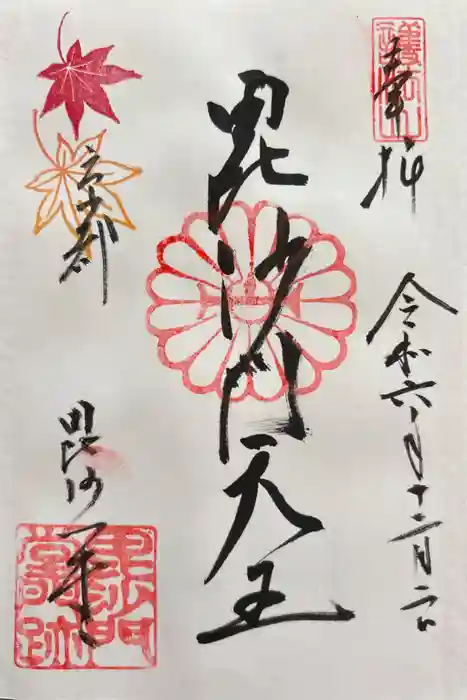 護法山
奉拝
令和六年十二月二日
毘沙門天王
京都
毘沙門堂
毘沙門
堂跡